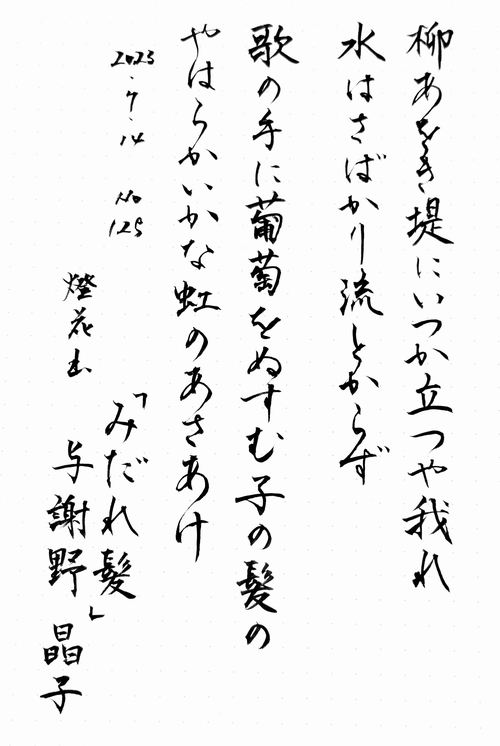 柳あをき堤にいつか立つや我れ
水はさばかり流とからず
歌の手に葡萄をぬすむ子の髪の
やはらかいかな虹のあさあけ
2023.7.14 No 125
燈花
「みだれ髪」
与謝野 晶子